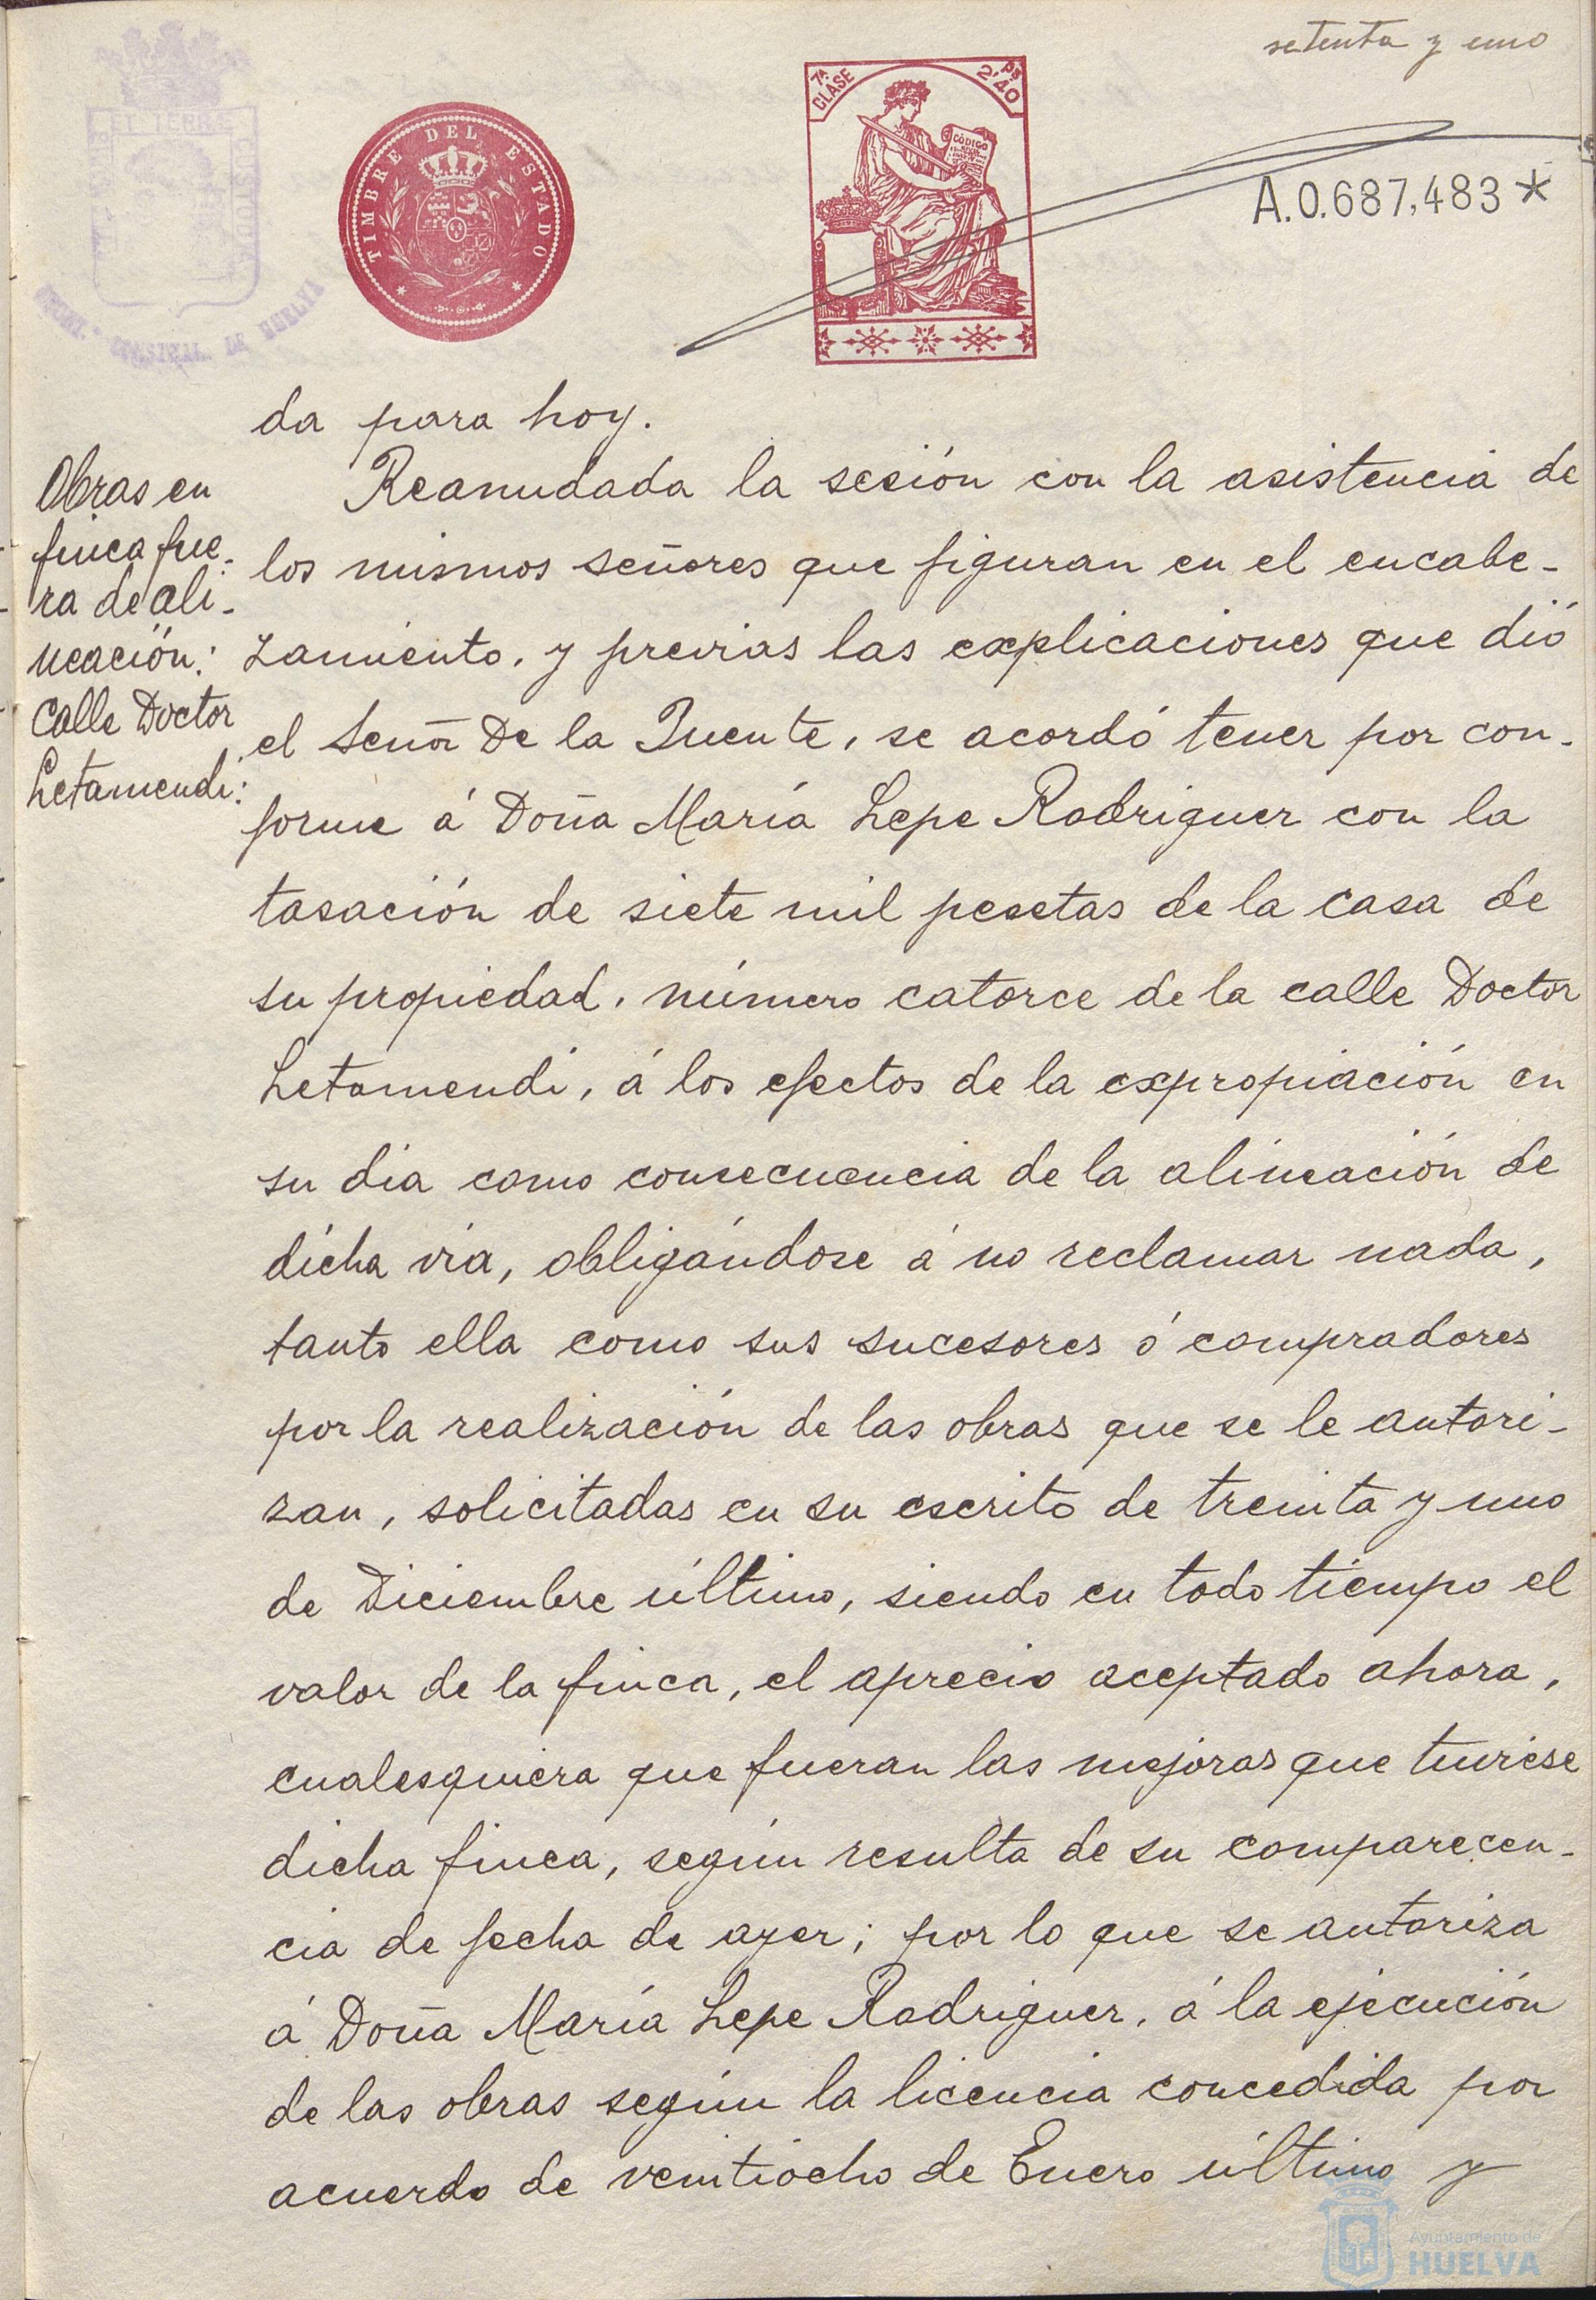 setenta y uno
TIMBRE DEL ESTADO
7ª CLASE
2'40 PS
CÓDIGO
A.0.687,483*
DE HUELVA
da para hoy.
Obras en
finca fue-
ra de ali-
neación:
Calle Doctor
Letamendi:
Reanudada la sesión con la asistencia de
los mismos señores que figuran en el encabe-
zamiento, y previas las explicaciones que dió
el Señor De la Fuente, se acordó tener por con-
forme á Doña María Lepe Rodriguez con la
tasación de siete mil pesetas de la casa de
su propiedad, número catorce de la calle Doctor
Letamendi, á los efectos de la expropiación en
su dia como consecuencia de la alineación de
dicha via, obligándose á no reclamar nada,
tanto ella como sus sucesores ó compradores
por la realización de las obras que se le autori-
zan, solicitadas en su escrito de treinta y uno
de Diciembre último, siendo en todo tiempo el
valor de la finca, el aprecio aceptado ahora,
cualesquiera que fueran las mejoras que tuviese
dicha finca, según resulta de su comparecen-
cia de fecha de ayer; por lo que se autoriza
á Doña María Lepe Rodriguez, á la ejecución
de las obras según la licencia concedida por
acuerdo de veintiocho de Enero último y
Ayuntamiento de
HUELVA